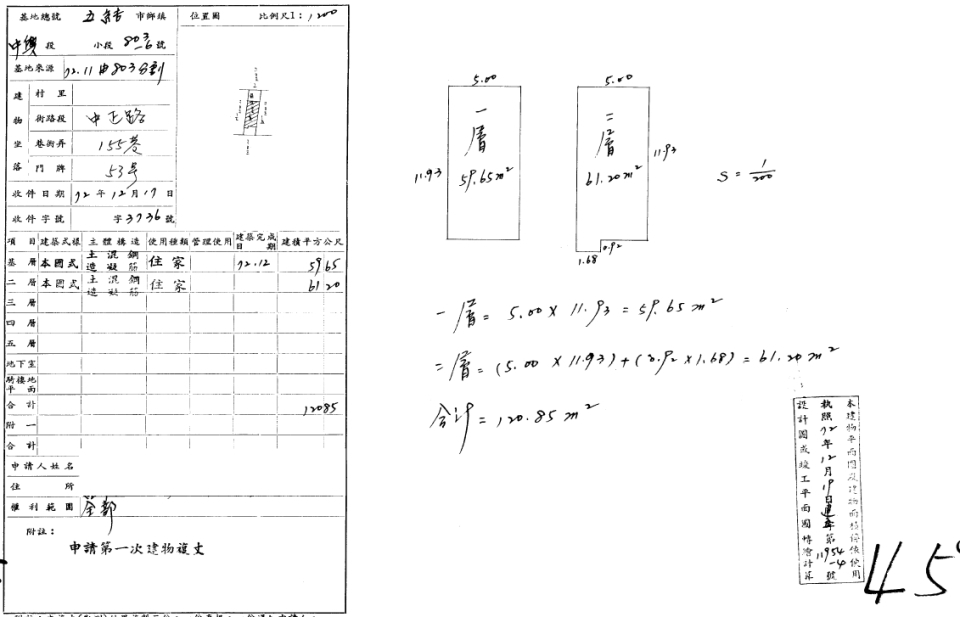 基地總號 五結 市鄉鎮
段 小段 803-6 號
基地來源 72.11由803分割
建物坐落
村里
街路段 中正路
巷術弄 155巷
門牌 53号
收件日期 72年12月19日
收件字號 字3736號
位置圖 比例尺1:1200
項目 建築式樣 主體構造 使用種類 管理使用 建築完成日期 建積平方公尺
基層 本國式 主混鋼造凝筋 住家 72.12 59 65
二層 本國式 主混鋼造凝筋 住家 61 20
三層
四層
五層
地下室
騎樓地平面
合計 120 85
附一
合計
申請人姓名
住所
權利範圍 全部
附註:
申請第一次建物複丈
5.00
一層
59.65m²
11.93
5.00
二層
61.20m²
11.93
0.92
1.68
S = 1/200
一層 = 5.00 x 11.93 = 59.65 m²
二層 = (5.00 x 11.93) + (0.92 x 1.68) = 61.20 m²
合计 = 120.85 m²
本建物平面圖及建物面積係依使用
執照72年12月19日建 第11954-4號
設計圖或竣工平面圖轉繪計算
45